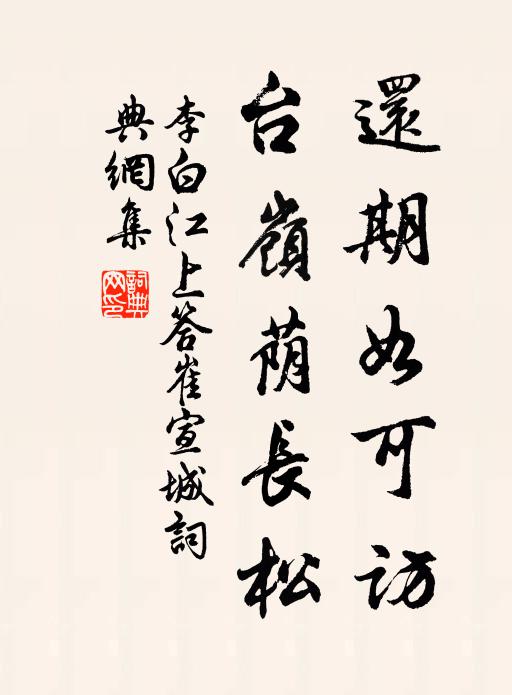 還期如可訪
台嶺蔭長松
李白江上答崔宣城詞
典網集
詞典
网印